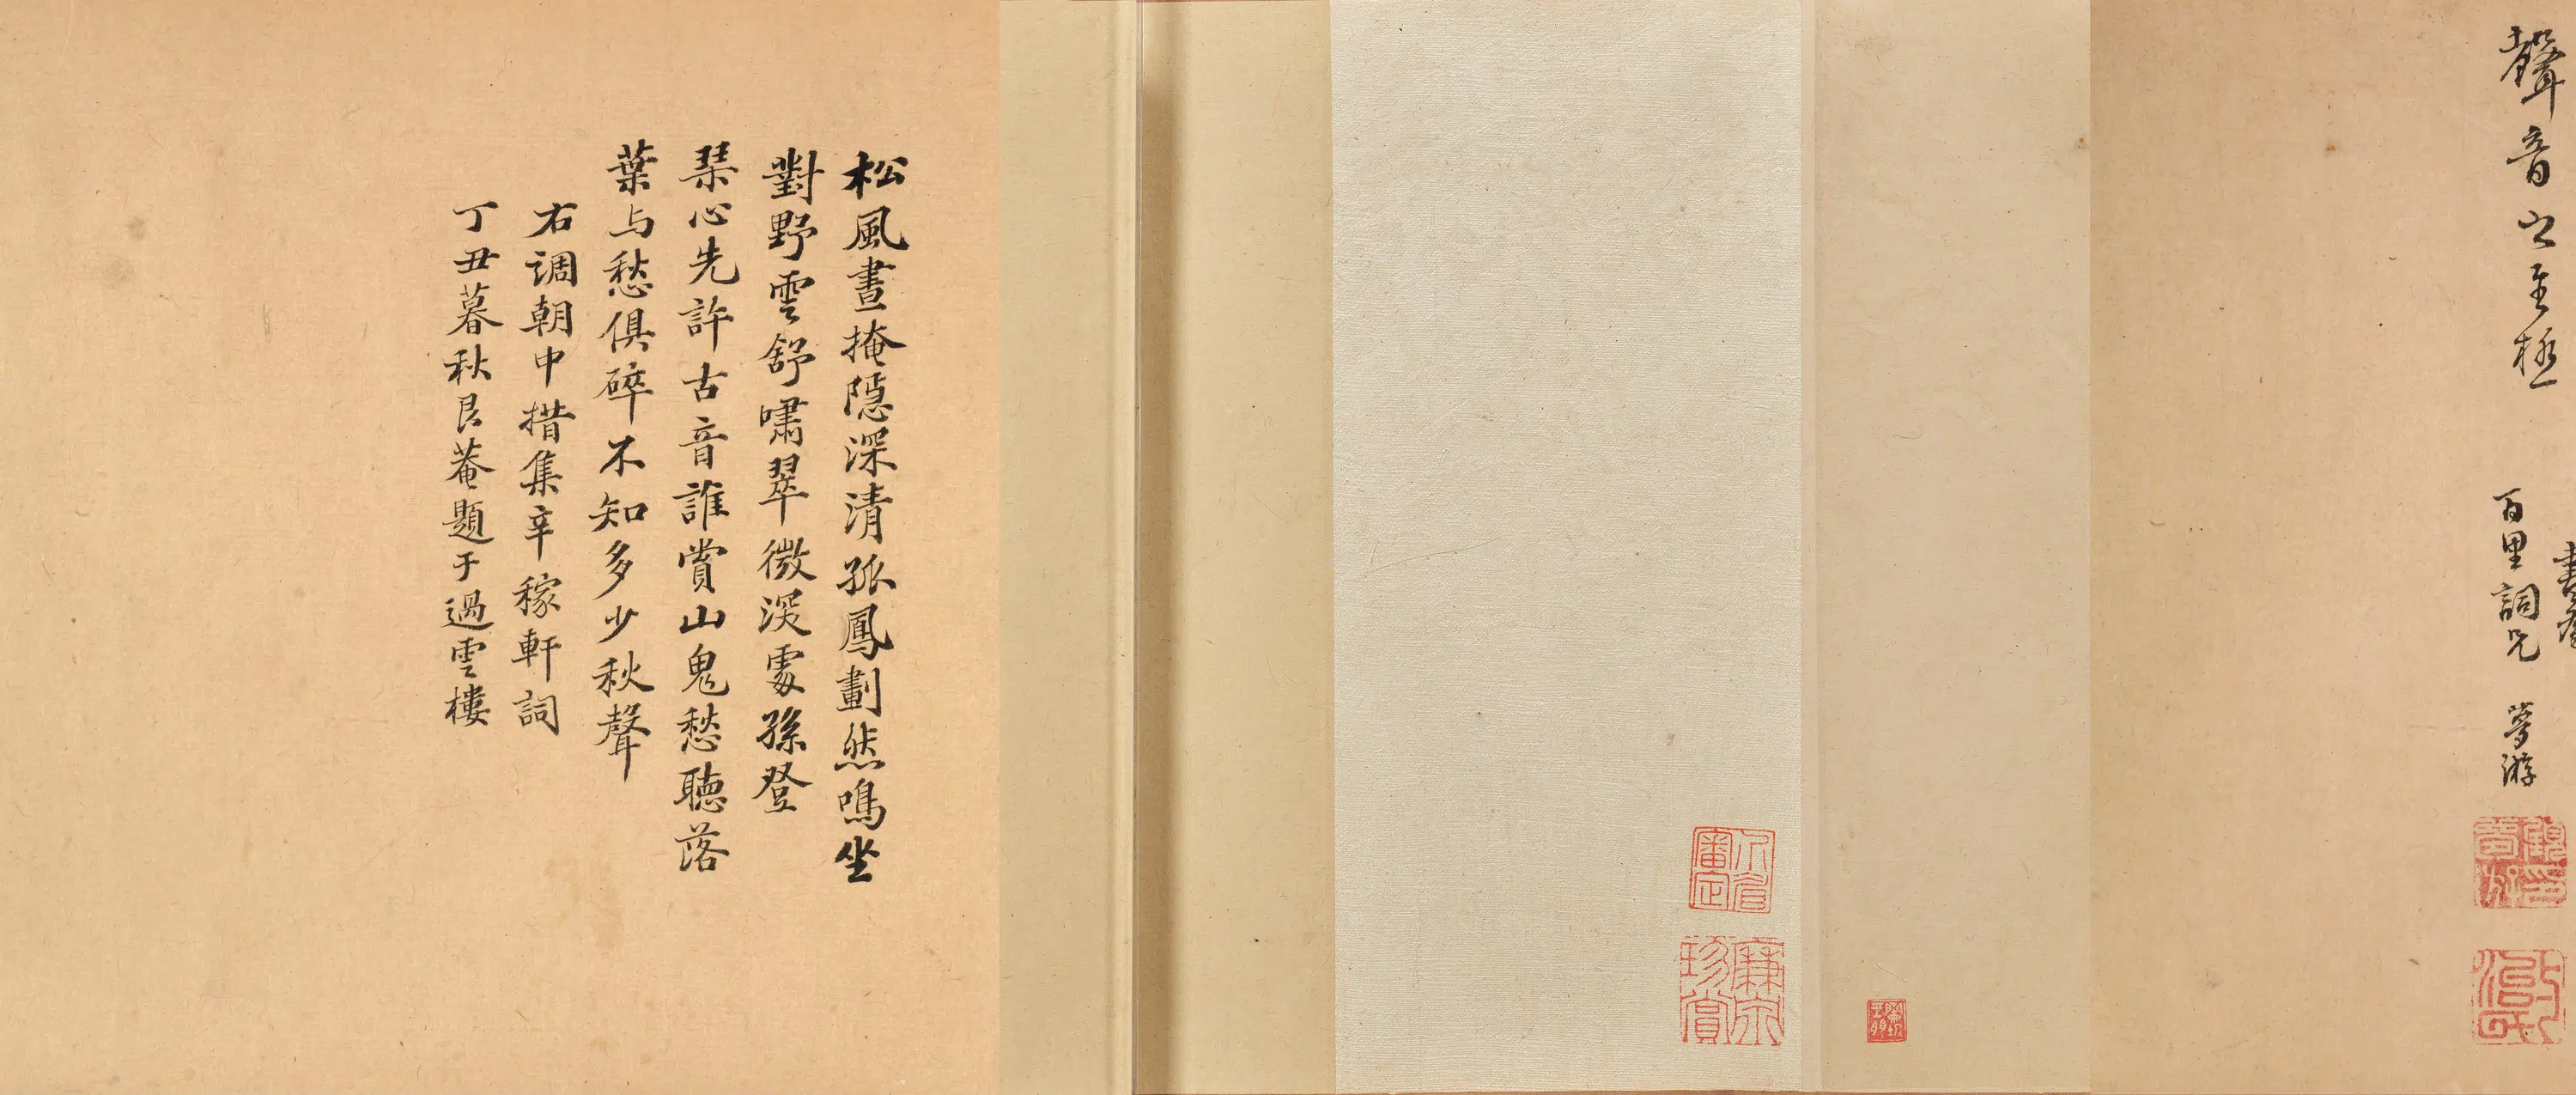 聲音之至極
百里詞兄
夢游
松風晝掩隱深清孤鳳劃然鳴坐
對野雲舒嘯翠微深處孫登
琹心先許古音誰賞山鬼愁聽落
葉与愁俱碎不知多少秋聲
右調朝中措集辛稼軒詞
丁丑暮秋艮菴題于過雲樓
審定
珍賞